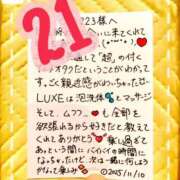 21
223様へ
いに来てくれて
して「超」の付く
オタクだということがわかって
すっごく親近感がわいちゃったぜー
LUXEは泡洗体♥とマッサージ
そして、ムフフ♥も全部を
欲張れるから好きだと教えて
くれてありがとう♥楽し過ぎて
あっという間にバイバイの時間に
なっちゃったけど、次は一緒に何しよう
かなって楽しみ
©2025/11/10